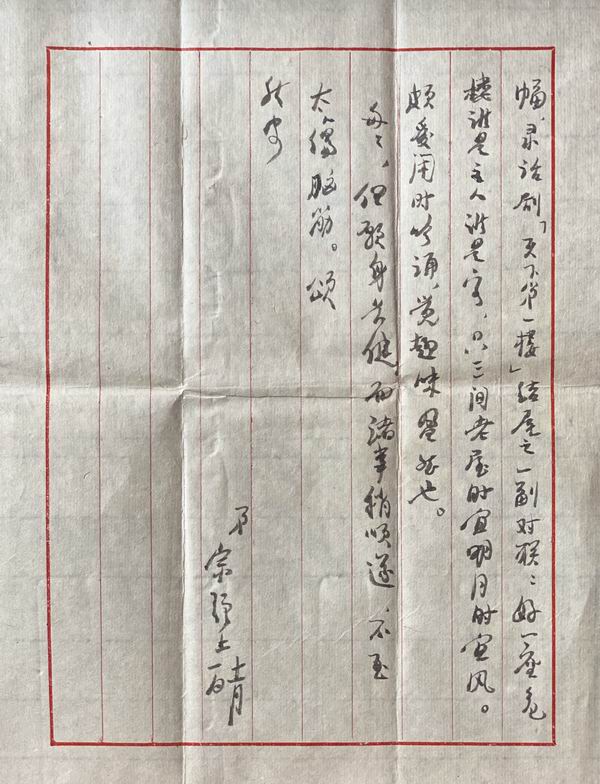 幅，录话剧「天下第一楼」结尾之一副对联：好一座危
楼谁是主人谁是客，只三间老屋时宜明月时宜风。
颇爱闲时吟诵，觉趣味盎然也。
每每，但愿身长健，而诸事稍顺遂，不至
太伤脑筋。颂
秋安
弟
宗强上
十一月
一日